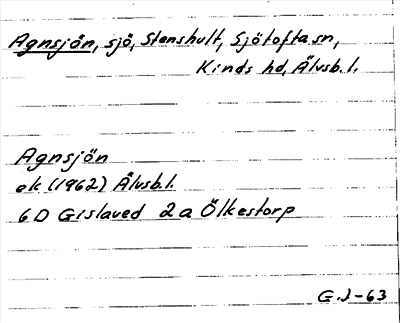 Agnsjön, sjö, Stenshult, Sjötofta sn,
Kinds hd, Älvsb. l.
Agnsjön
ek (1962) Älvsb. l.
6D Gislaved 2a Ölkestorp
G.J-63